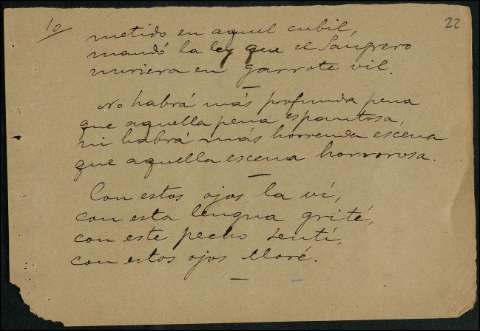 10
22
metido en aquel cubil,
mandó la ley que el Sangrero
muriera en garrote vil.
No habrá más profunda pena
que aquella pena espantosa,
ni habrá más horrenda escena
que aquella escena horrorosa.
Con estos ojos la ví,
con esta lengua grité,
con este pecho sentí,
con estos ojos lloré.